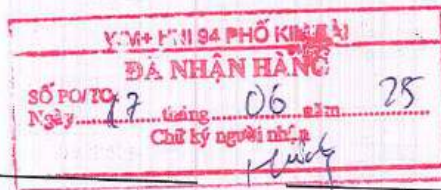 WM+ HNI 94 PHỐ KIM BÀI
ĐÃ NHẬN HÀNG
SỐ PO/TO
Ngày 17 tháng 06 năm 25
Chữ ký người nhận